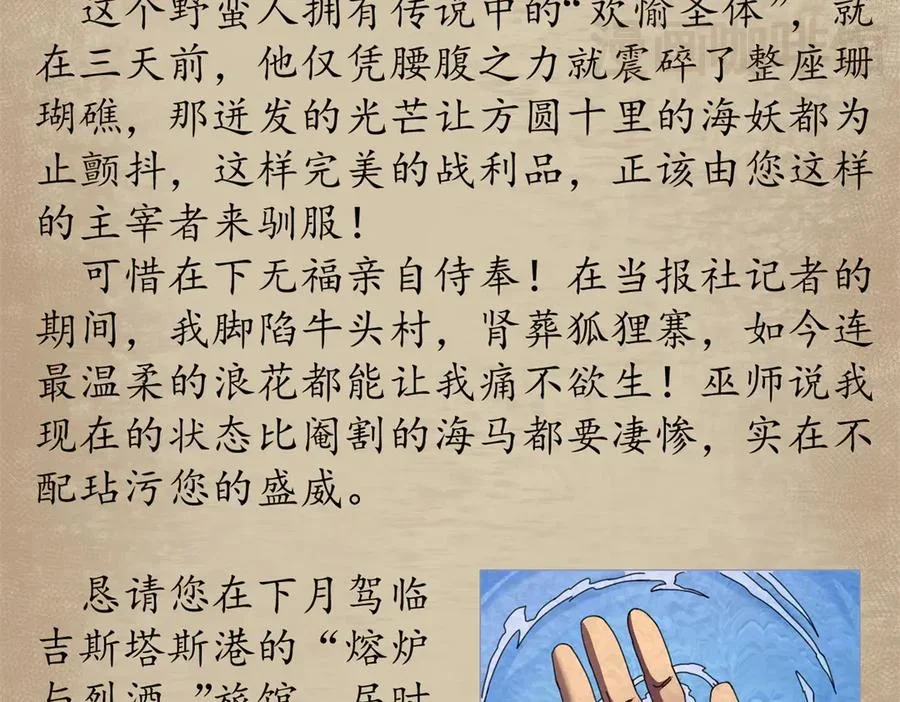 这个野蛮人拥有传说中的“欢愉圣体”，就
在三天前，他仅凭腰腹之力就震碎了整座珊
瑚礁，那迸发的光芒让方圆十里的海妖都为
止颤抖，这样完美的战利品，正该由您这样
的主宰者来驯服！
可惜在下无福亲自侍奉！在当报社记者的
期间，我脚陷牛头村，肾葬狐狸寨，如今连
最温柔的浪花都能让我痛不欲生！巫师说我
现在的状态比阉割的海马都要凄惨，实在不
配玷污您的盛威。
恳请您在下月驾临
吉斯塔斯港的“熔炉
与烈酒”旅馆，届时